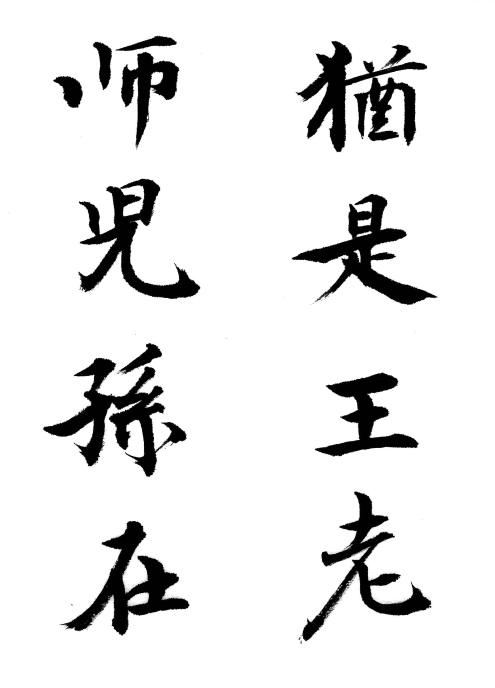 猶是王老
师児孫在